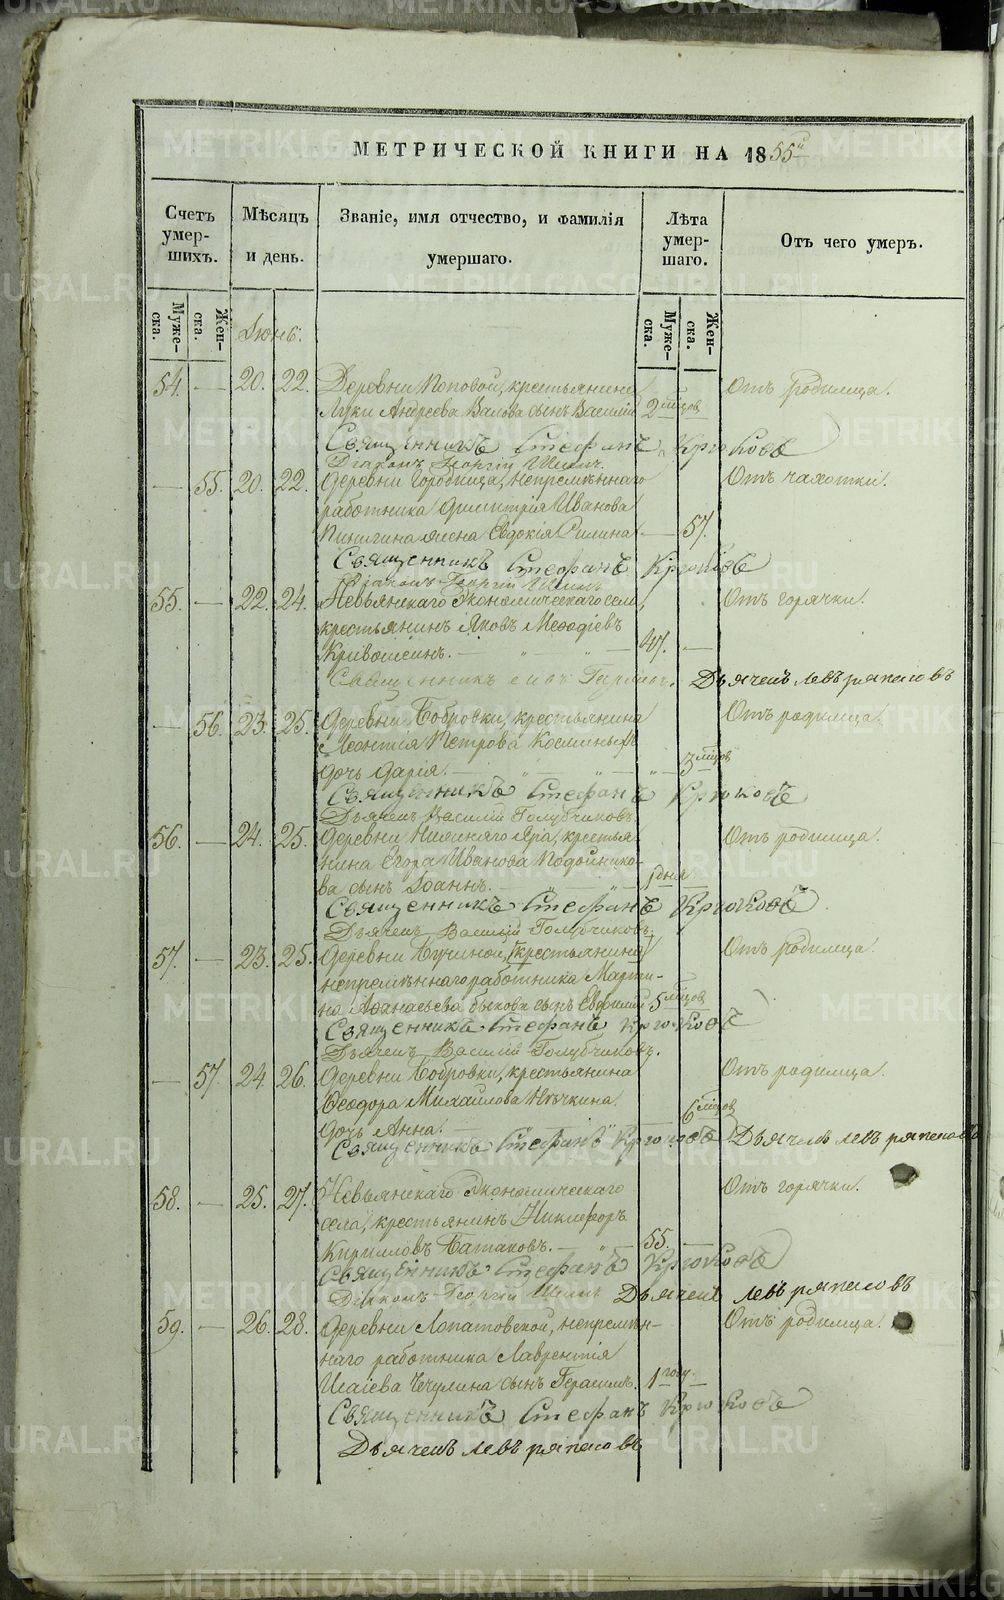 МЕТРИЧЕСКОЙ КНИГИ НА 1855й
Счетъ умер-шихъ.
Мѣсяцъ и день.
Званіе, имя отчество, и фамилія умершаго.
Лѣта умер-шаго.
Отъ чего умеръ.
Муже-ска.
Жен-ска.
Муже-ска.
Жен-ска.
Іюнь.
54. — 20. 22. Деревни Поповой, крестьянина Отъ родимца.
Луки Андреева сынъ Василій 2 мѣсцов
Священникъ Стефанъ Крюковъ
Діаконъ Георгій
— 55. 20. 22. Деревни Городища, непремѣннаго Отъ чахотки.
работника Димитрія Иванова
Пинигина жена Евдокія — 57.
Священникъ Стефанъ Крюковъ
Діаконъ Георгій
55. — 22. 24. Невьянскаго Экономическаго села, Отъ горячки.
крестьянинъ Яковъ Меѳодіевъ
Кривошеинъ. — " — " — 47. —
Священникъ Дьячекъ Левъ Ряпасовъ
— 56. 23. 25. Деревни Бобровки, крестьянина Отъ родимца.
Леонтія Петрова Косминыхъ
дочь Дарія. — " — " — " 3 мѣсцов
Священникъ Стефанъ Крюковъ
Дьячекъ Василій Голубчиковъ.
56. — 24. 25. Деревни Нижняго Яра, крестья- Отъ родимца.
нина Егора Иванова Подойнико-
ва сынъ Іоаннъ. — 1 дня
Священникъ Стефанъ Крюковъ
Дьячекъ Василій Голубчиковъ.
57. — 23. 25. Деревни Ключиной, [крестьянина] Отъ родимца.
непремѣннаго работника Марти-
на Аѳанасьева Быкова сынъ Евфимій 5 мѣсцов
Священникъ Стефанъ Крюковъ
Дьячекъ Василій Голубчиковъ.
— 57. 24. 26. Деревни Бобровки, крестьянина Отъ родимца.
Ѳеодора Михайлова
дочь Анна. — 6 мѣсцов
Священникъ Стефанъ Крюковъ Дьячекъ Левъ Ряпасовъ
58. — 25. 27. Невьянскаго Экономическаго Отъ горячки.
села, крестьянинъ Никифоръ
Кирилловъ Батаковъ. — " — 55. —
Священникъ Стефанъ Крюковъ
Діаконъ Георгій Дьячекъ Левъ Ряпасовъ
59. — 26. 28. Деревни Лопатовской, непремѣн- Отъ родимца.
наго работника Лаврентія
Исаіева Чечулина сынъ Герасимъ. 1 году.
Священникъ Стефанъ Крюковъ
Дьячекъ Левъ Ряпасовъ
METRIKI.GASO-URAL.RU